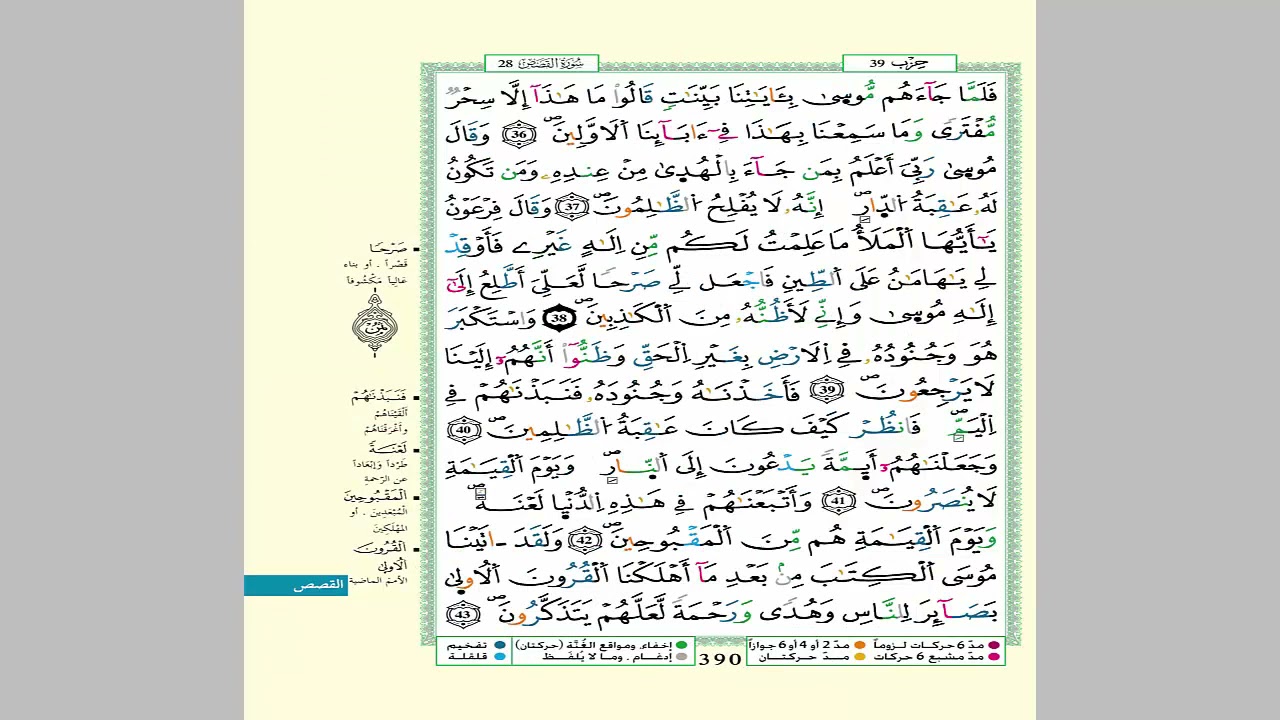 حِزْب 39
سُورَةُ القَصَصِ 28
فَلَمَّا جَآءَهُم مُّوسىٰ بِـَٔايَـٰتِنَا بَيِّنَـٰتٍ قَالُوا۟ مَا هَـٰذَآ إِلَّا سِحْرٌ
مُّفْتَرىٗ وَمَا سَمِعْنَا بِهَـٰذَا فِےٓ ءَابَآئِنَا اَ۬لَاوَّلِينَۖ 36 وَقَالَ
مُوسىٰ رَبِّيَ أَعْلَمُ بِمَن جَآءَ بِالْهُدىٰ مِنْ عِندِهِۦ وَمَن تَكُونُ
لَهُۥ عَـٰقِبَةُ اُ۬لدِّارِۖ إِنَّهُۥ لَا يُفْلِحُ اُ۬لظَّـٰلِمُونَۖ 37 وَقَالَ فِرْعَوْنُ
يَـٰٓأَيُّهَا اَ۬لْمَلَأُ مَا عَلِمْتُ لَكُم مِّنِ اِلَـٰهٍ غَيْرِے فَأَوْقِدْ
لِے يَـٰهَـٰمَـٰنُ عَلَى اَ۬لطِّينِ فَاجْعَل لِّے صَرْحاٗ لَّعَلِّيَ أَطَّلِعُ إِلَىٰٓ
إِلَـٰهِ مُوسىٰ وَإِنِّے لَأَظُنُّهُۥ مِنَ اَ۬لْكَـٰذِبِينَۖ 38 وَاسْتَكْبَرَ
هُوَ وَجُنُودُهُۥ فِے اِ۬لَارْضِ بِغَيْرِ اِ۬لْحَقِّ وَظَنُّوٓا۟ أَنَّهُمُۥٓ إِلَيْنَا
لَا يَرْجِعُونَۖ 39 فَأَخَذْنَـٰهُ وَجُنُودَهُۥ فَنَبَذْنَـٰهُمْ فِے
اِ۬لْيَمِّۖ فَانظُرْ كَيْفَ كَانَ عَـٰقِبَةُ اُ۬لظَّـٰلِمِينَۖ 40
وَجَعَلْنَـٰهُمُۥٓ أَيِمَّةٗ يَدْعُونَ إِلَى اَ۬لنِّارِۖ وَيَوْمَ اَ۬لْقِيَـٰمَةِ
لَا يُنصَرُونَۖ 41 وَأَتْبَعْنَـٰهُمْ فِے هَـٰذِهِ اِ۬لدُّنْيا لَعْنَةٗۖ
وَيَوْمَ اَ۬لْقِيَـٰمَةِ هُم مِّنَ اَ۬لْمَقْبُوحِينَۖ 42 وَلَقَدَ ـاتَيْنَا
مُوسَى اَ۬لْكِتَـٰبَ مِنۢ بَعْدِ مَآ أَهْلَكْنَا اَ۬لْقُرُونَ اَ۬لُاولىٰ
بَصَآئِرَ لِلنَّاسِ وَهُدىٗ وَرَحْمَةٗ لَّعَلَّهُمْ يَتَذَكَّرُونَۖ 43
صَرْحاً
قَصْراً. أو بناء
عَالِياً مَكْشُوفاً
فَنَبَذْنَـٰهُمْ
أَلْقَيْنَاهُمْ
وأَغْرَقْنَاهُمْ
لَعْنَةً
طَرْداً وَإِبْعَاداً
عن الرّحمةِ
اَ۬لْمَقْبُوحِينَ
المُبْعَدِينَ. أو
المُهْلَكِينَ
اَ۬لْقُرُونَ
اَ۬لُاولىٰ
الأُمَمَ الماضية
القصص
مدّ 6 حركات لـزوماً
مدّ 2 أو 4 أو 6 جوازاً
إخفاء، ومواقع الغُنَّة (حركتان)
تفخيم
مدّ مشبع 6 حركات
مـدّ حـركتـان
إدغـام، ومـا لا يُلفَـظ
قلقلة
390